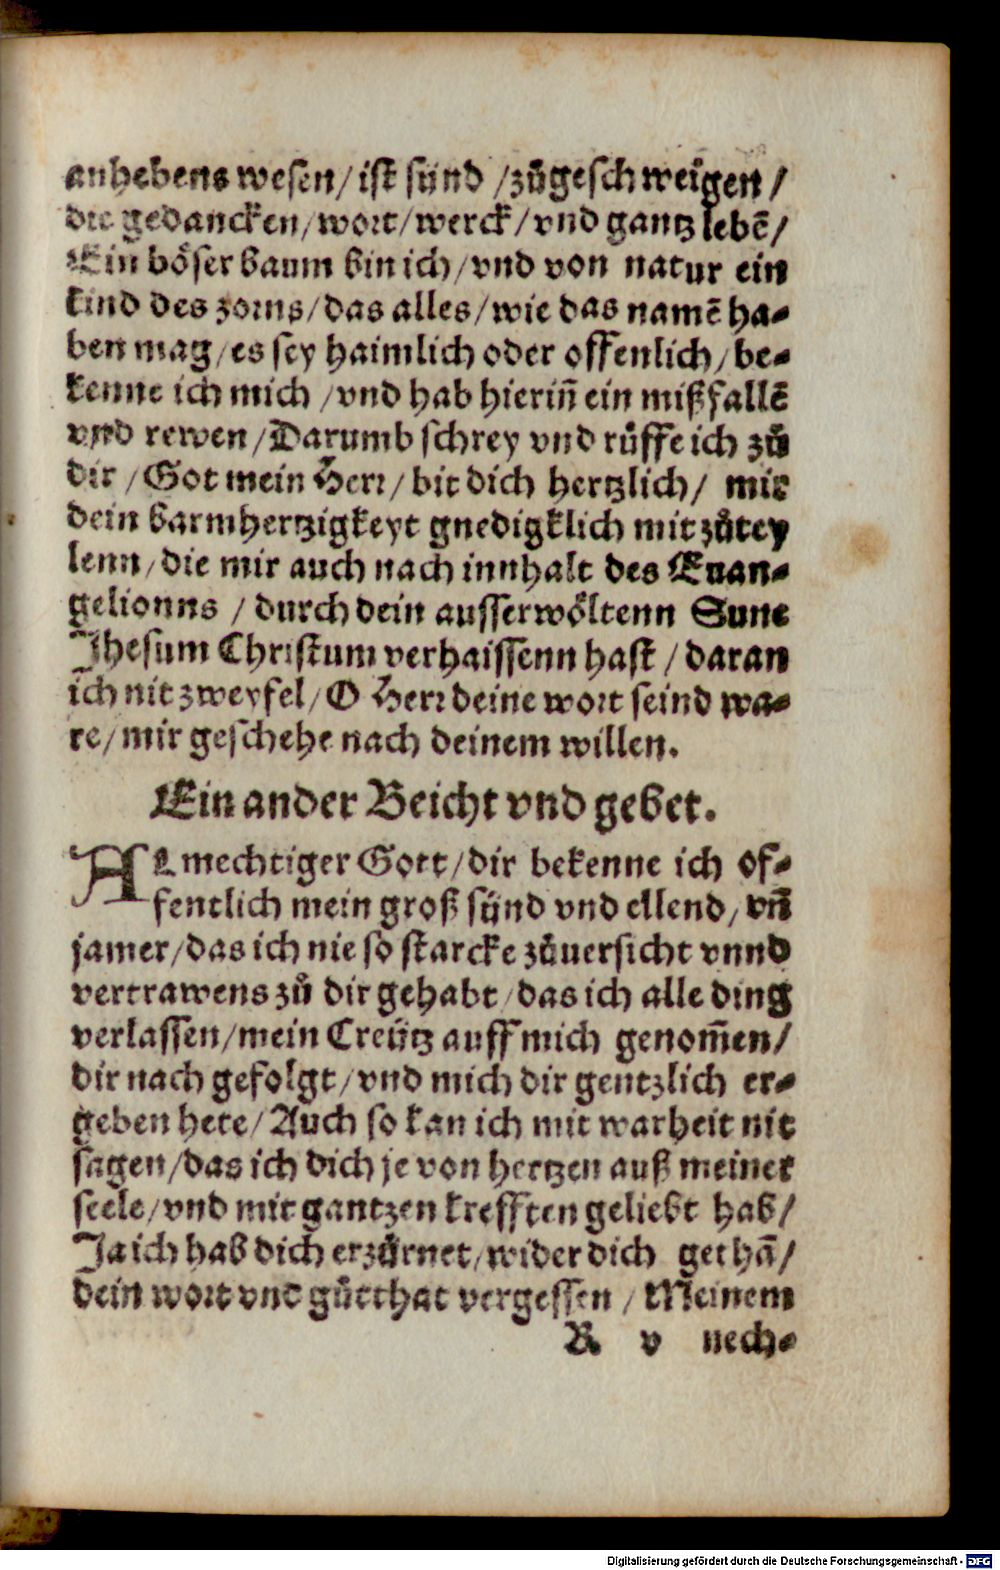 anhebens wesen / ist sünd / zůgeschweigen /
die gedancken / wort / werck / vnd gantz lebẽ /
Ein böser baum bin ich / vnd von natur ein
kind des zorns / das alles / wie das namẽ ha-
ben mag / es sey haimlich oder offenlich / be-
kenne ich mich / vnd hab hieriñ ein mißfallẽ
vnd rewen / Darumb schrey vnd růffe ich zů
dir / Got mein Herr / bit dich hertzlich / mir
dein barmhertzigkeyt gnedigklich mit zůtey
lenn / die mir auch nach innhalt des Euan-
gelionns / durch dein ausserwöltenn Sune
Jhesum Christum verhaissenn hast / daran
ich nit zweyfel / O Herr deine wort seind wa-
re / mir geschehe nach deinem willen.
Ein ander Beicht vnd gebet.
ALmechtiger Gott / dir bekenne ich of-
fentlich mein groß sünd vnd ellend / vñ
jamer / das ich nie so starcke zůuersicht vnnd
vertrawens zů dir gehabt / das ich alle ding
verlassen / mein Creütz auff mich genom̃en /
dir nach gefolgt / vnd mich dir gentzlich er-
geben hete / Auch so kan ich mit warheit nit
sagen / das ich dich je von hertzen auß meiner
seele / vnd mit gantzen krefften geliebt hab /
Ja ich hab dich erzůrnet / wider dich gethã /
dein wort vnd gůtthat vergessen / Meinem
R v nech-
Digitalisierung gefördert durch die Deutsche Forschungsgemeinschaft - DFG